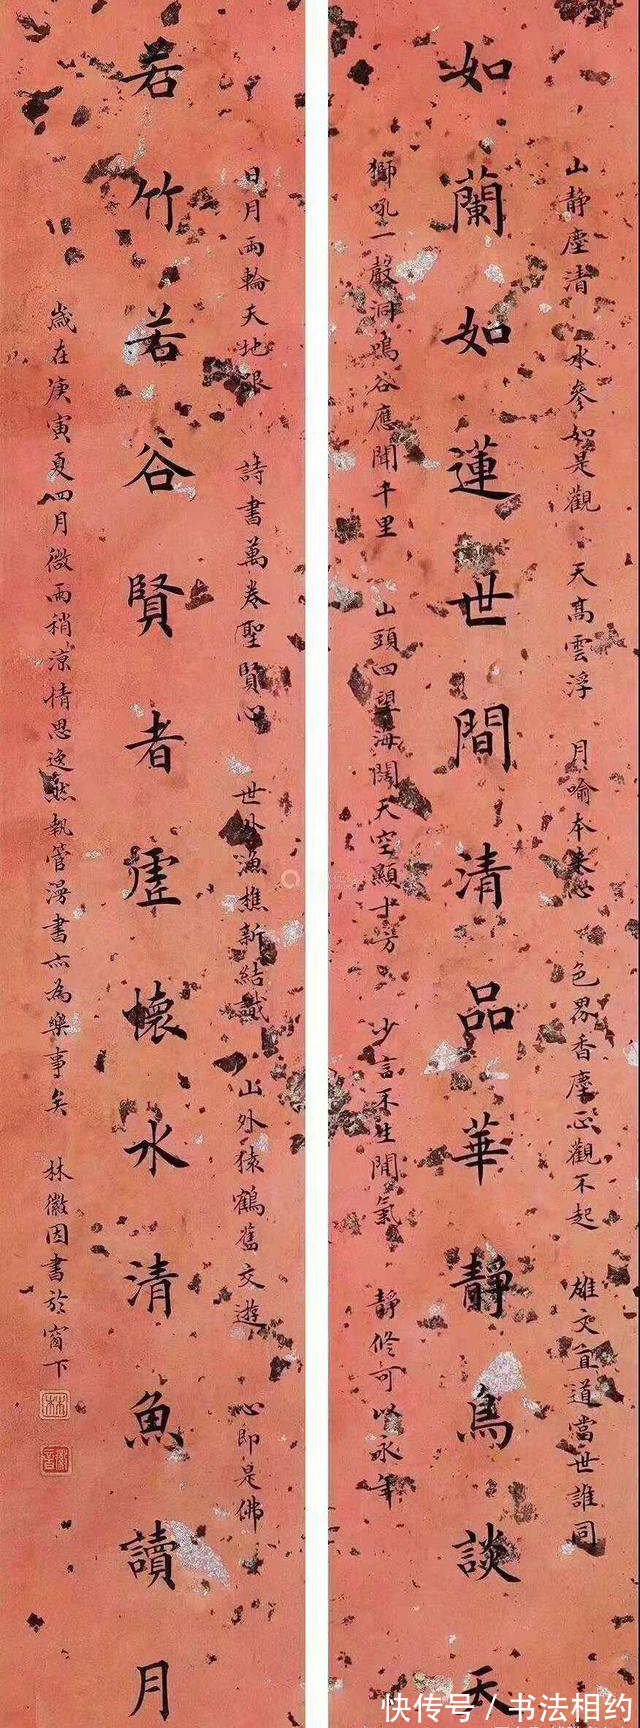 山静塵清 水參如是觀 天高雲浮 月喻本来心 色界香塵正觀不起 雄文直道當世誰同
如蘭如蓮世間清品華靜鳥談天
獅吼一聲洞鳴谷應聞千里 山頭四望海闊天空顯十方 少言不生閒氣 靜修可以永年
日月兩輪天地眼 詩書萬卷聖賢心 世外漁樵新結識 山外猿鶴舊交遊 心即是佛
若竹若谷賢者虛懷水清魚讀月
歲在庚寅夏四月微雨稍涼情思逸然執管漫書亦為樂事矣 林徽因書於窗下
林
徽音
快传号 / 书法相约